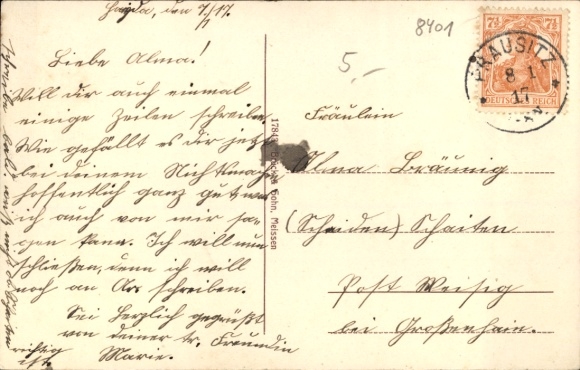 den 7./1.17.
Liebe Alma!
Will dir auch einmal
einige Zeilen schreiben.
Wie gefällt es dir jetzt
bei deinem
hoffentlich ganz gut was
ich auch von mir sa-
gen kann. Ich will nun
schließen, denn ich will
noch an schreiben.
Sei herzlich gegrüßt
von deiner tr. Freundin
Marie.
richtig
ist.
8401
5,-
7½ 7½
DEUTSCHES REICH
PRAUSITZ
8 1
17
Brück & Sohn, Meissen
Fräulein
Alma Bräunig
(Scheiden) Schaiten
Post Weisig
bei Großenhain.